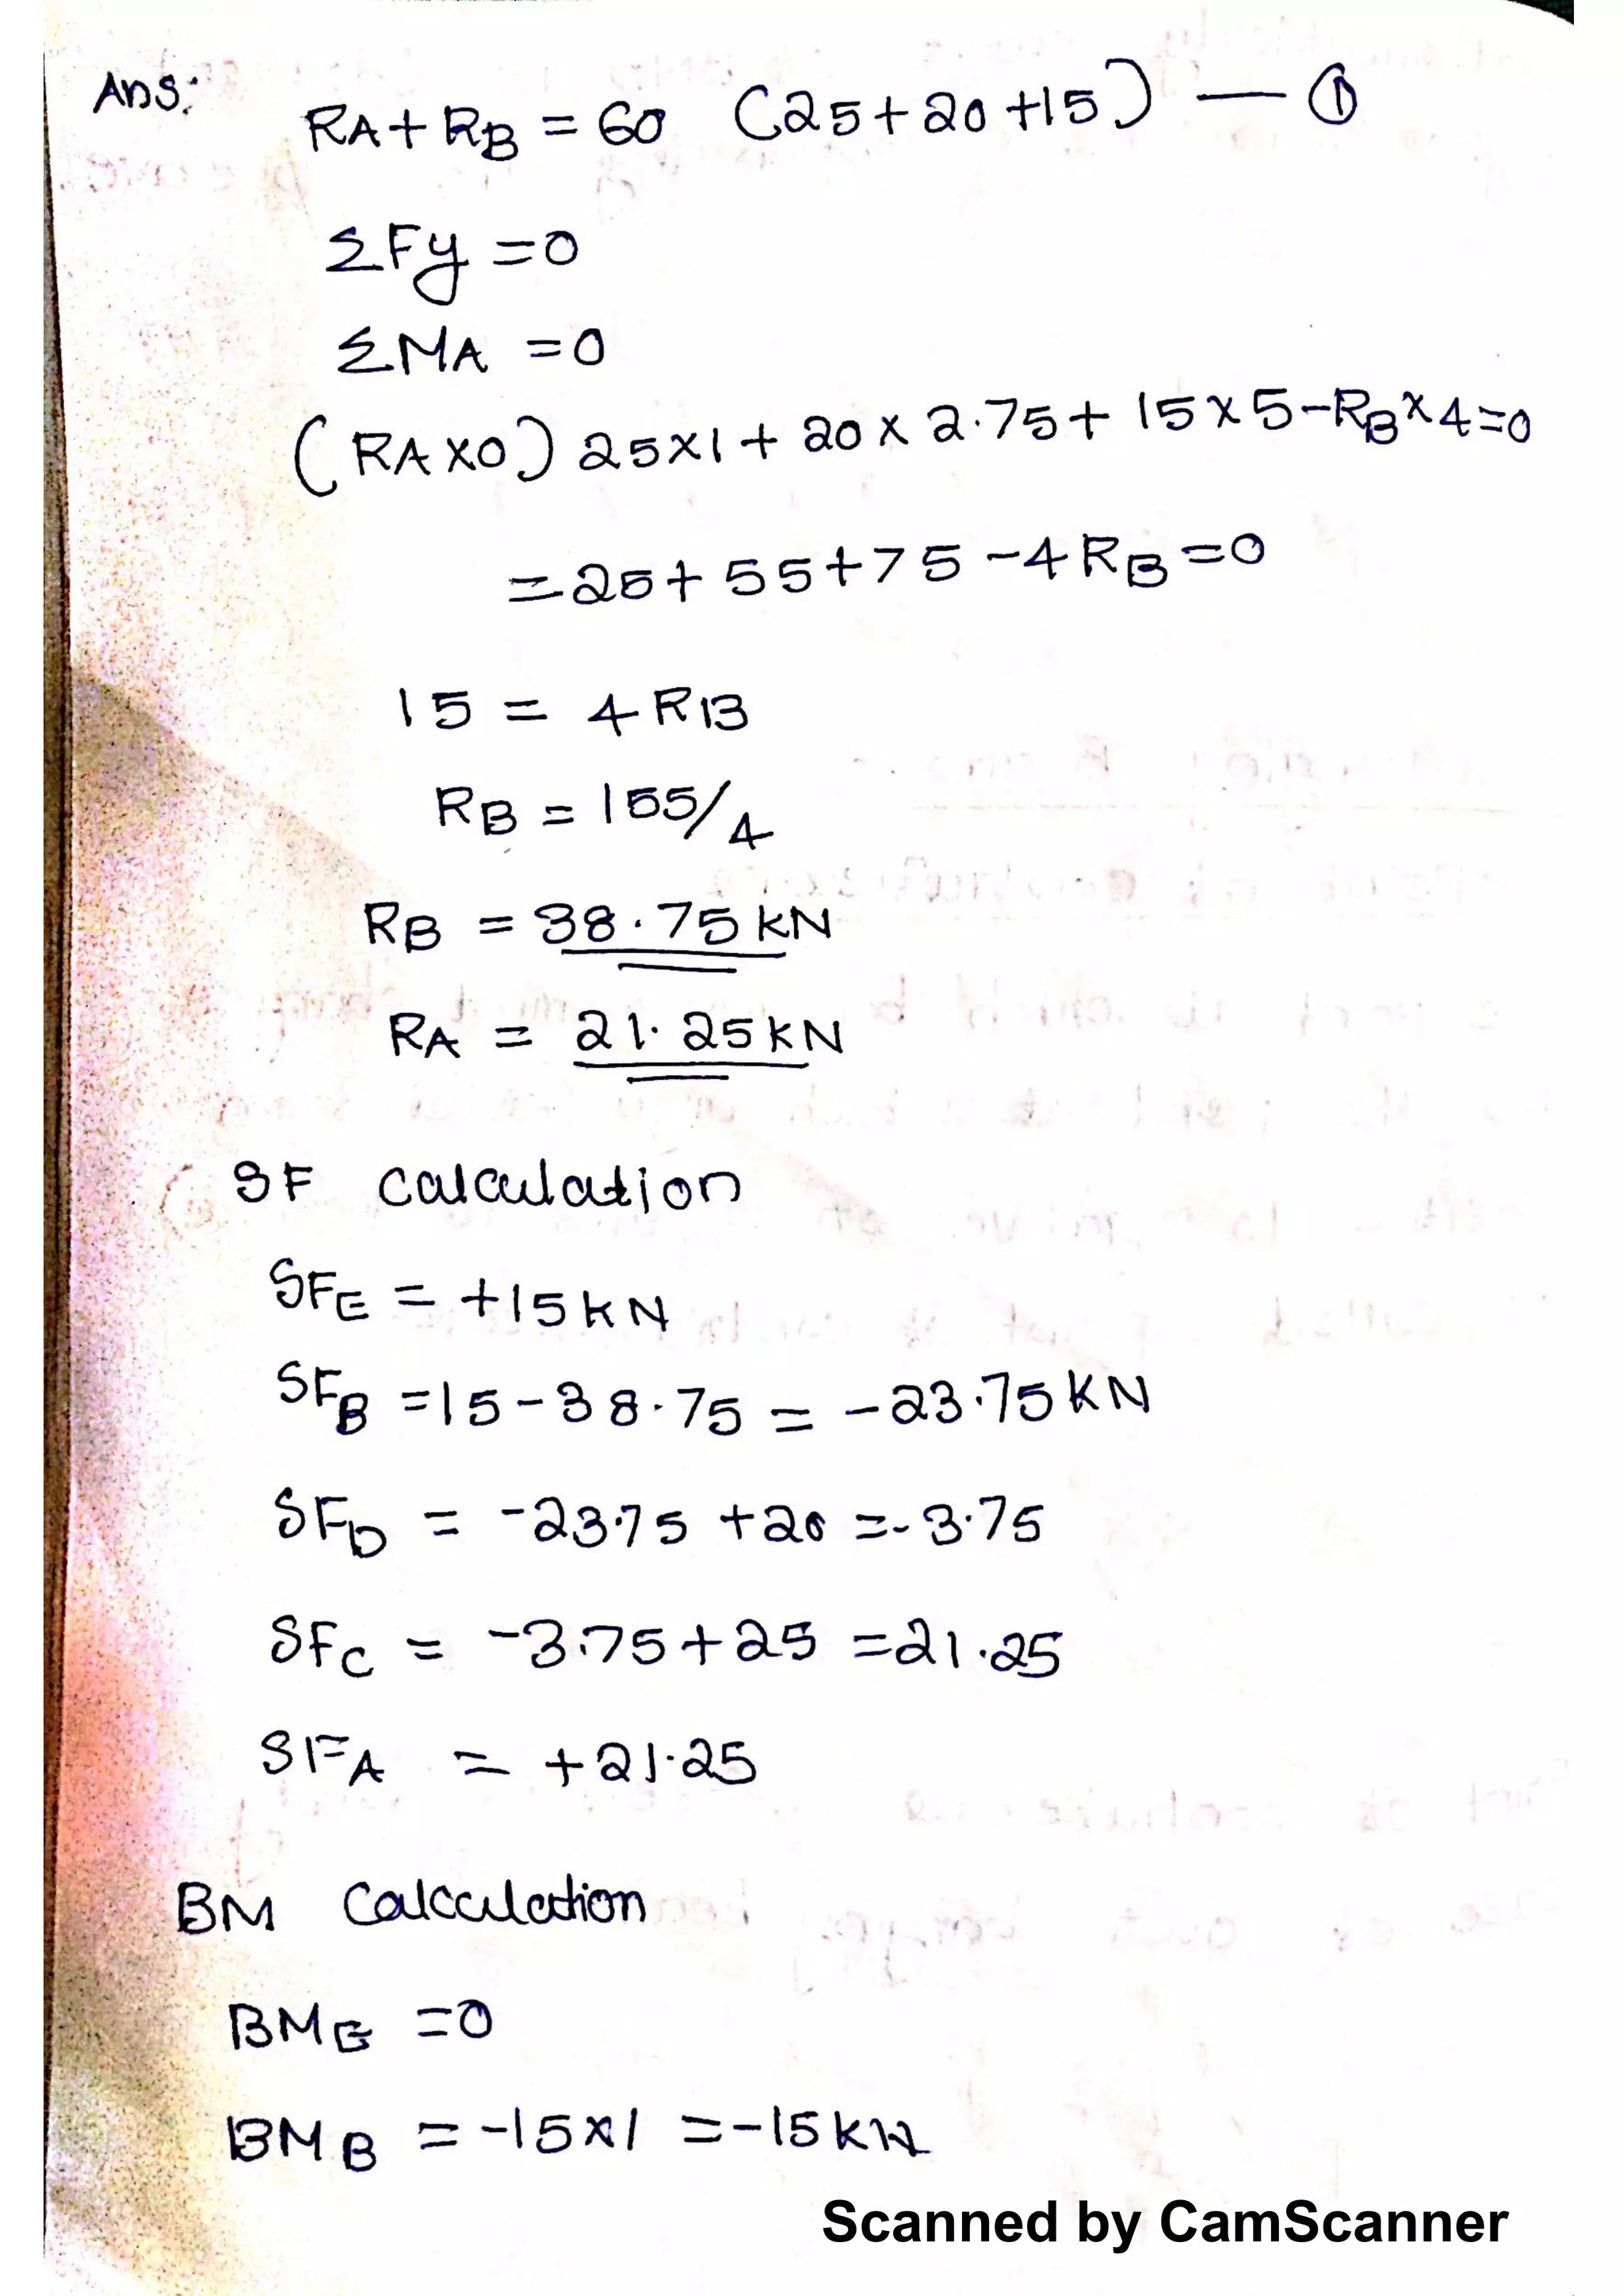 Ans:
RA + RB = 60 (25+20+15) — ①
ΣFy = 0
ΣMA = 0
(RA x0) 25x1 + 20 x 2.75 + 15 x 5 - RB x 4 = 0
= 25 + 55 + 75 - 4 RB = 0
15 = 4 RB
RB = 155/4
RB = 38.75 kN
RA = 21.25 kN
SF calculation
SFE = +15 kN
SFB = 15 - 38.75 = -23.75 KN
SFD = -23.75 + 20 = -3.75
SFC = -3.75 + 25 = 21.25
SFA = +21.25
BM Calculation
BME = 0
BMB = -15 x 1 = -15 kN
Scanned by CamScanner